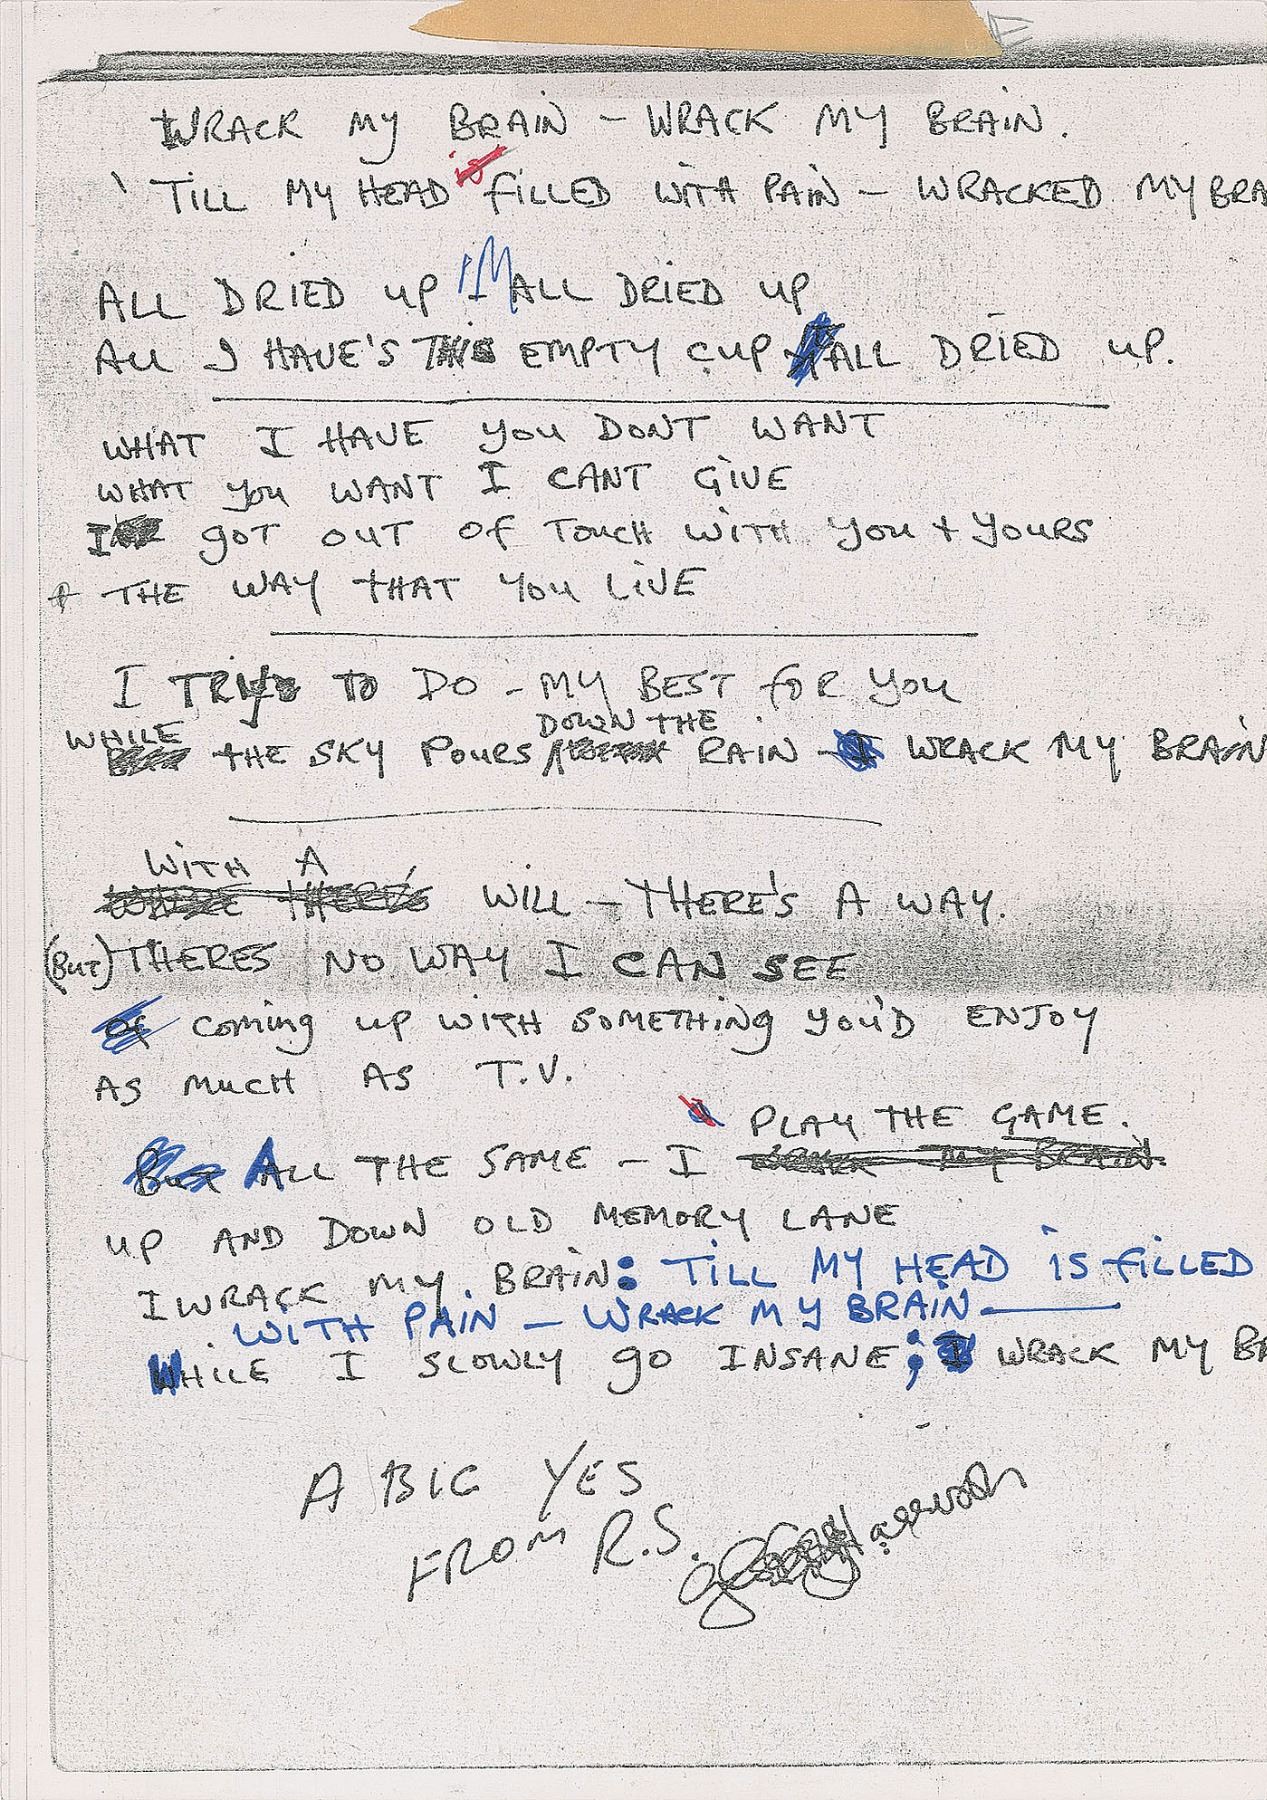 WRACK MY BRAIN - WRACK MY BRAIN.
'TILL MY HEAD is FILLED WITH PAIN - WRACKED MY BRA
ALL DRIED UP I'M ALL DRIED UP
ALL I HAVE'S THIS EMPTY CUP ALL DRIED UP.
WHAT I HAVE YOU DONT WANT
WHAT YOU WANT I CANT GIVE
I GOT OUT OF TOUCH WITH YOU + YOURS
+ THE WAY THAT YOU LIVE
I TRY TO DO - MY BEST FOR YOU
DOWN THE
WHILE THE SKY POURS RAIN - WRACK MY BRAIN
WITH A
WILL - THERE'S A WAY.
(BUT) THERES NO WAY I CAN SEE
OF COMING UP WITH SOMETHING YOU'D ENJOY
AS MUCH AS T.V.
PLAY THE GAME.
BUT ALL THE SAME - I WRACK MY BRAIN.
UP AND DOWN OLD MEMORY LANE
I WRACK MY BRAIN: TILL MY HEAD IS FILLED
WITH PAIN - WRACK MY BRAIN
WHILE I SLOWLY GO INSANE; I WRACK MY BR
A BIG YES
FROM R.S.